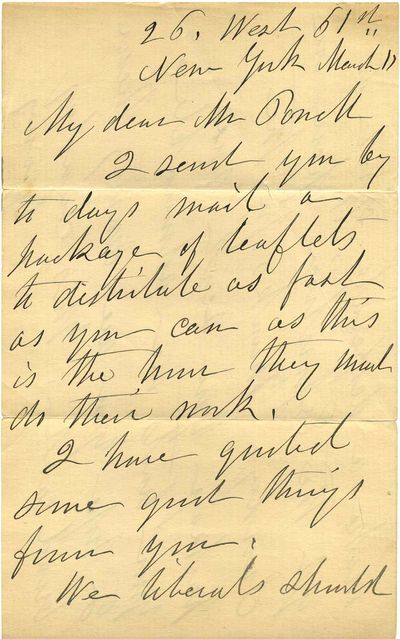 26. West 61st
New York March 11
My dear Mr Powell
I send you by
to days mail a
package of leaflets
to distribute as fast
as you can as this
is the hour they must
do their work.
I have quoted
some good things
from you.
We liberals should